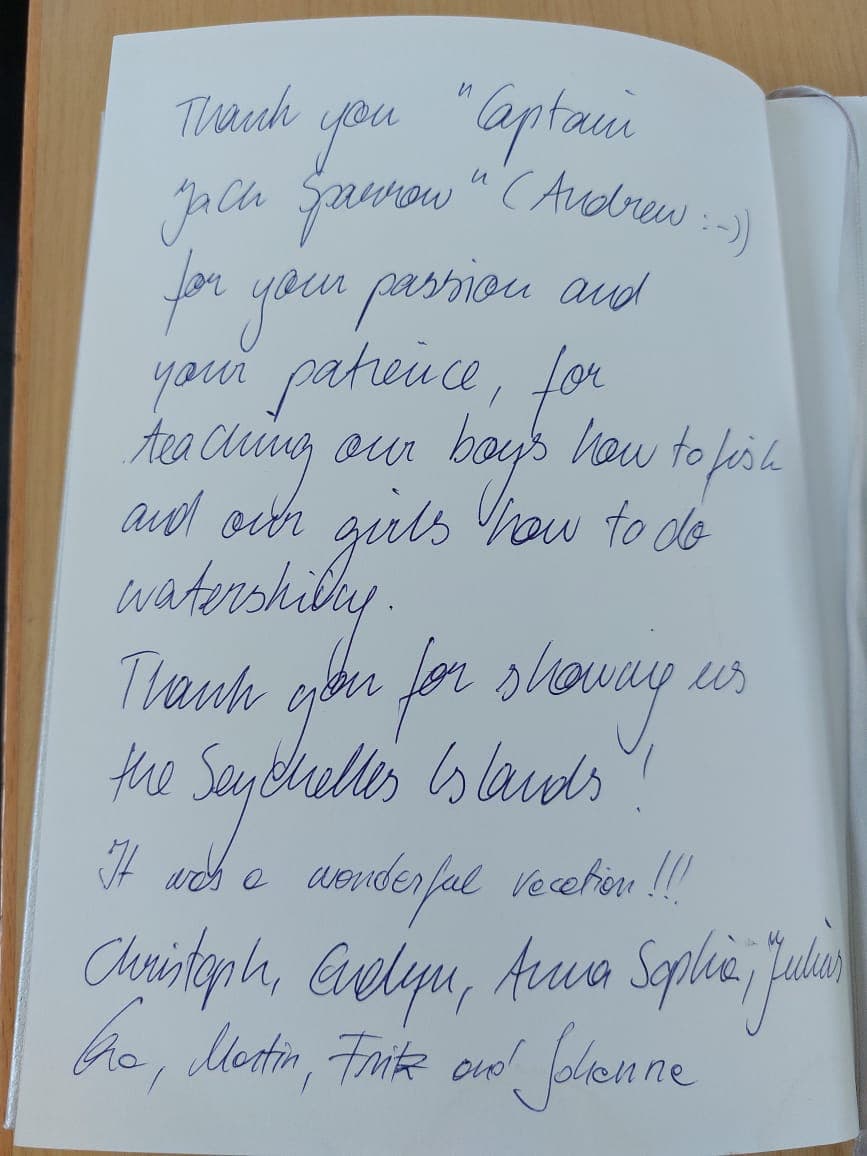 Thank you "Captain
Jack Sparrow" (Andrew :-))
for your passion and
your patience, for
teaching our boys how to fish
and our girls how to do
waterskiing.
Thank you for showing us
the Seychelles Islands!
It was a wonderful vacation!!!
Christoph, Evelyn, Anna Sophia, Julius
Eva, Martin, Fritz and Johanna